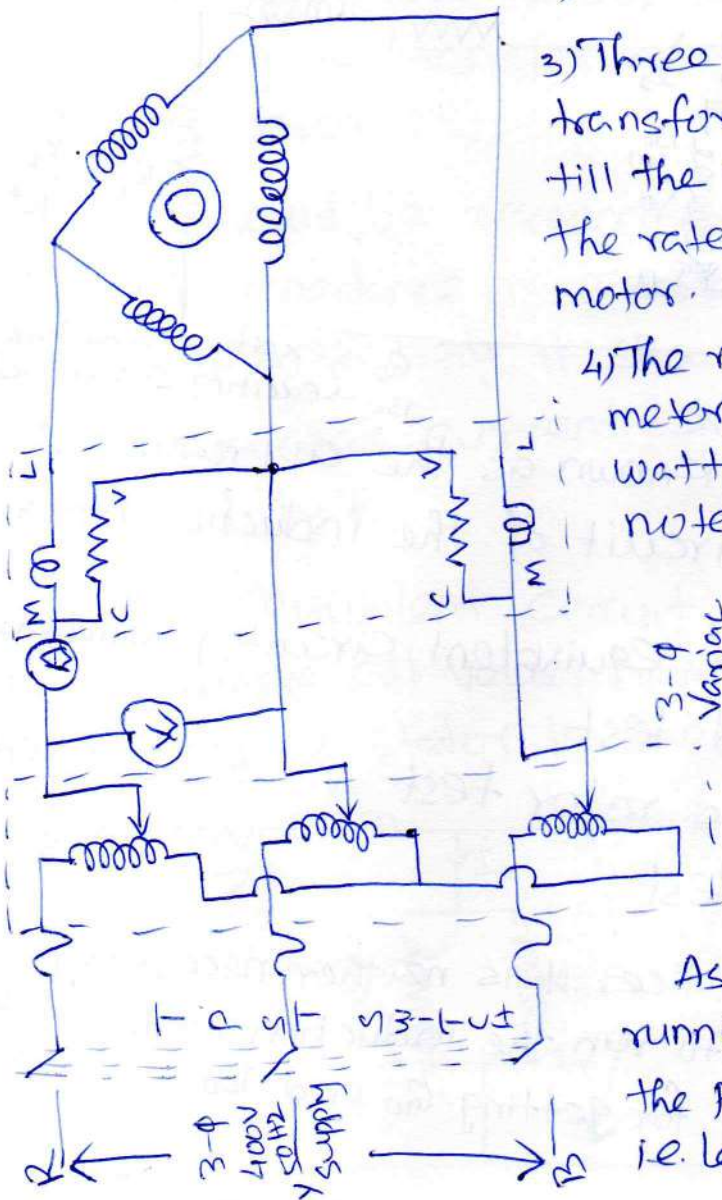 3) Three
transfor
till the
the rate
motor.
4) The r
meter
watt
note
As
runn
the p
i.e. Lo
M
L
C
V
A
V
V
L
C
M
3-φ
Variac
T
P
S
T
S
R
3-φ
400V
50Hz
Supply
Y
B